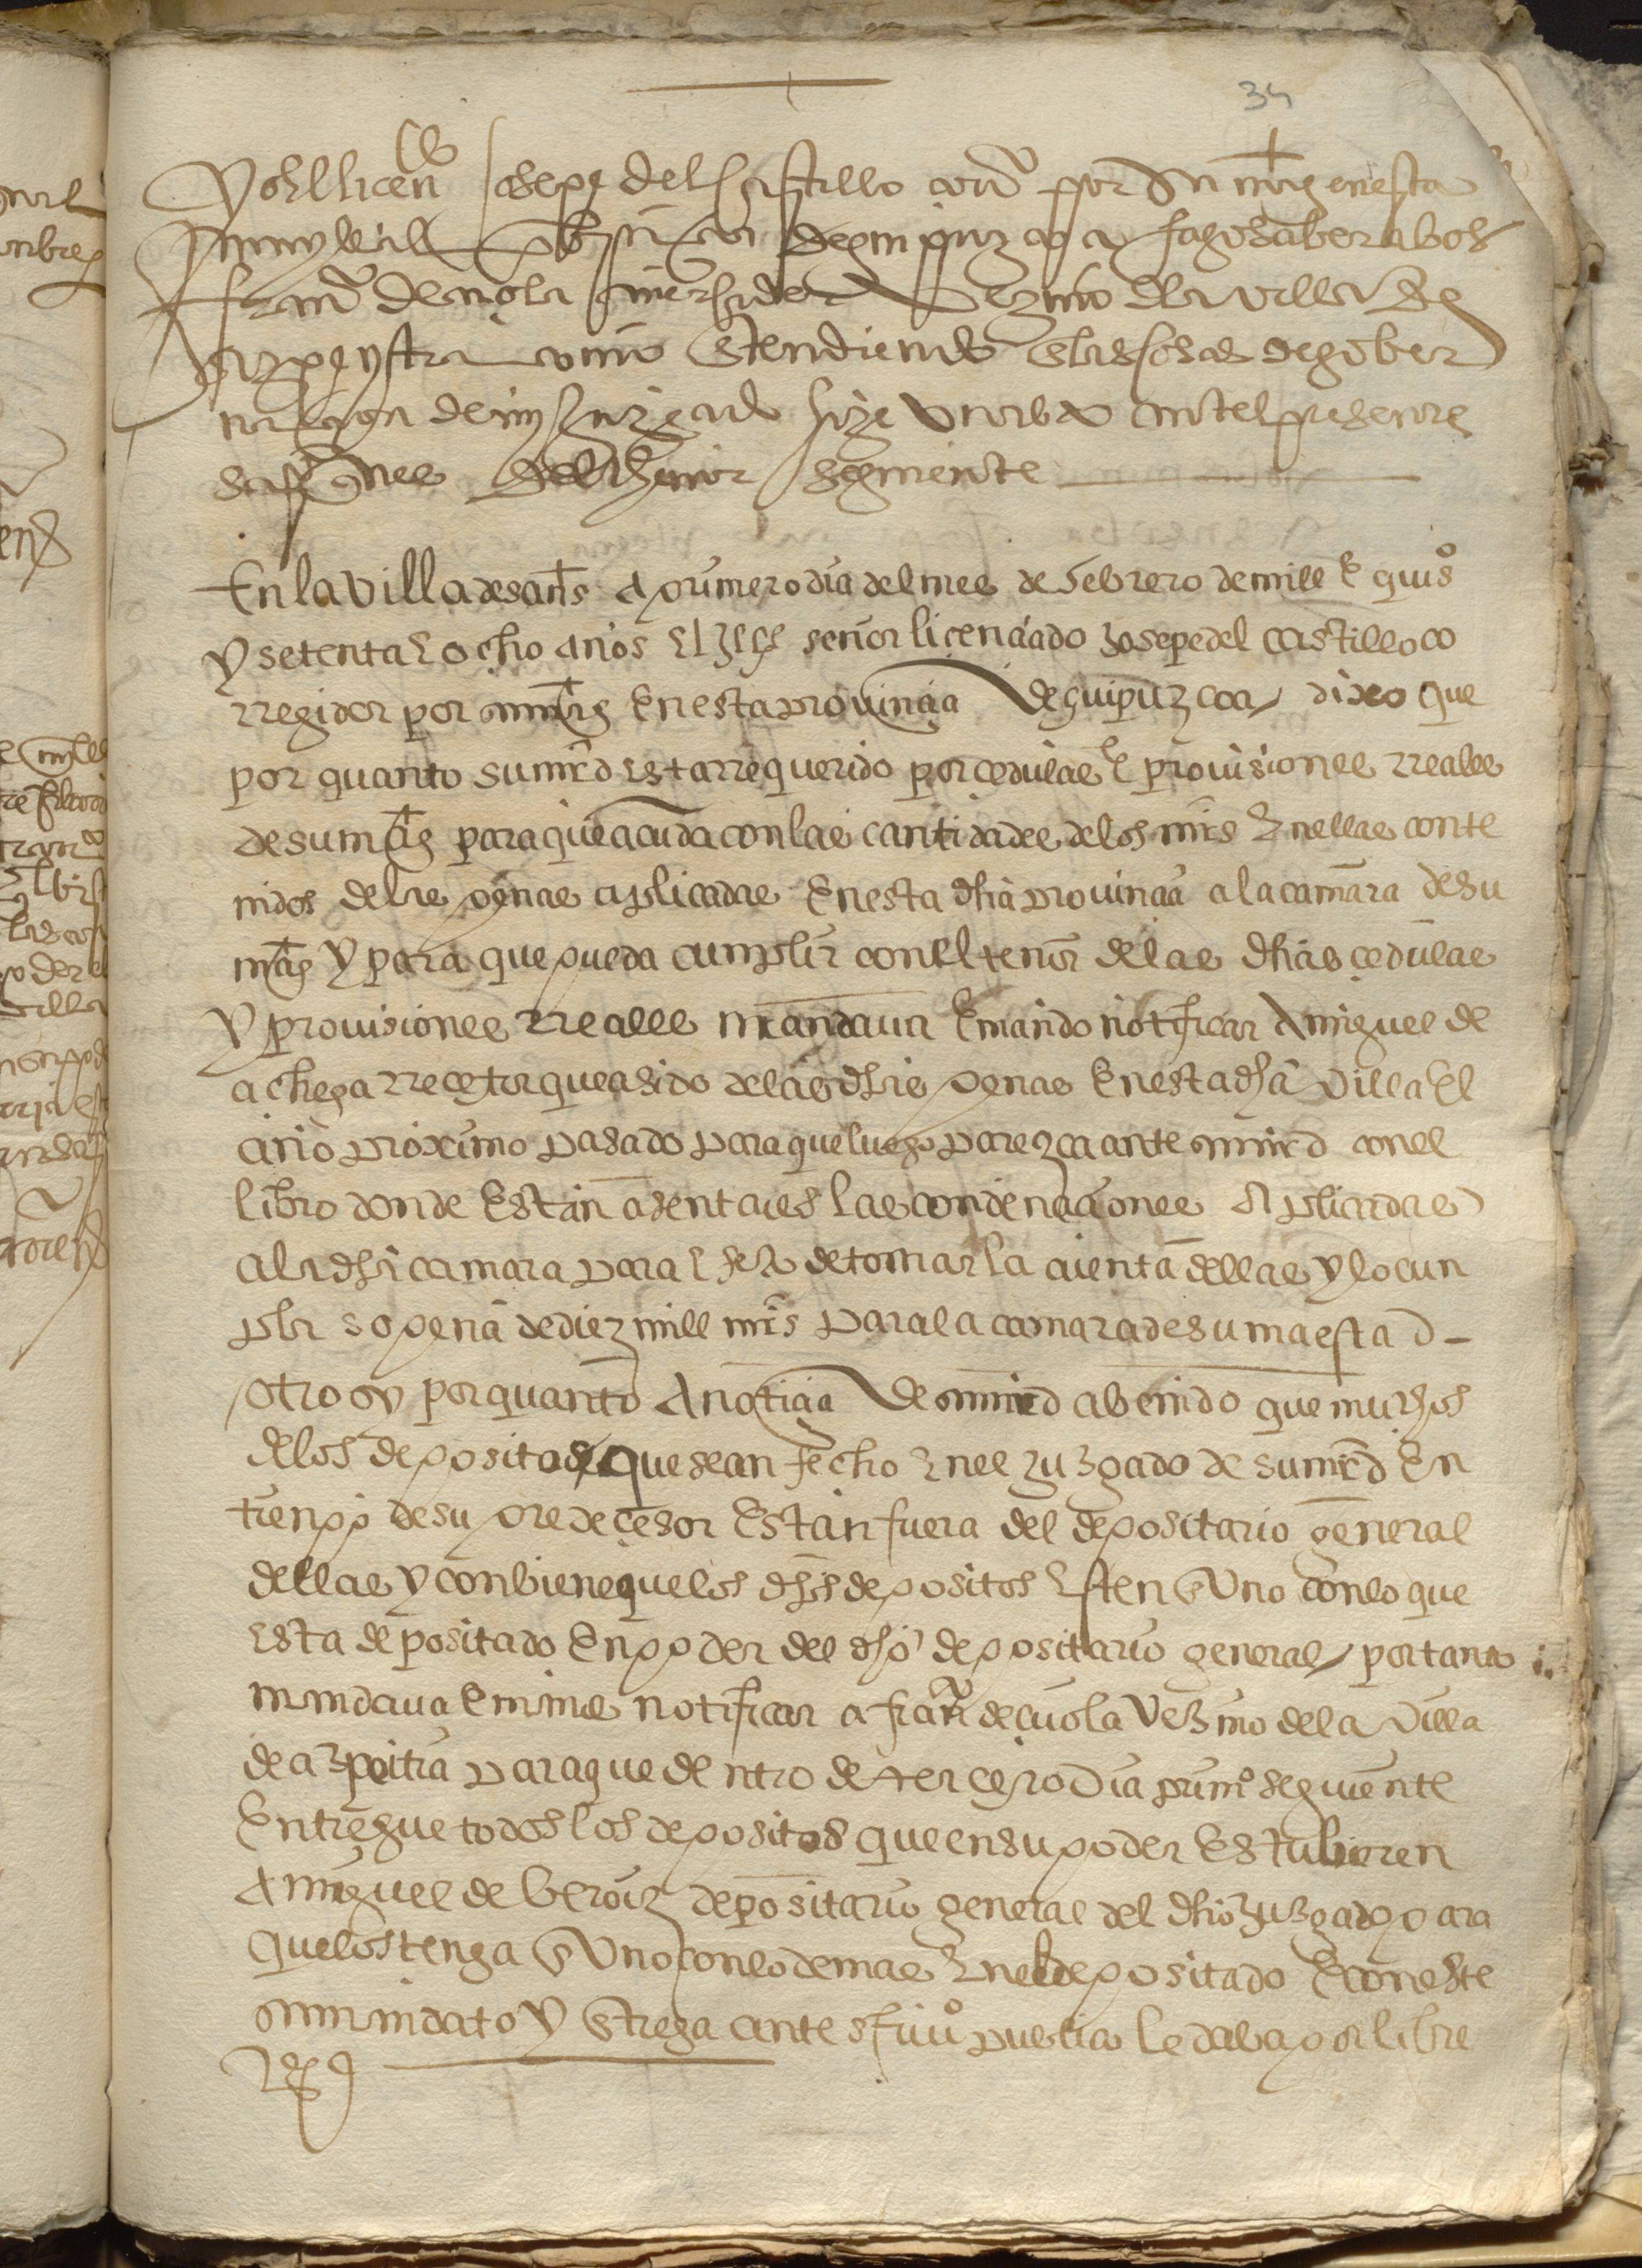 34
Yo el licendo Josepe del Castillo corror por su magd en esta
muy leal probinçia de guipuzcoa fago saber a bos
franco de cuola mercader vezino de la villa de
azpeytia como entendiendo en las cosas de gober
naçion de mi juzgado hize un abto ante el presente
del thenor seguiente
En la villa de sant s. a primero dia del mes de febrero de mill e quios
y setenta e ocho años el señor liçençiado Josepe del castillo co
rregidor por su mag en esta provinçia de guipuzcoa dixo que
por quanto su mrd esta rrequerido por cedulas e provisiones rreales
de su mag para que acuda con las cantidades de los mrs en ellas conte
nidos de las penas aplicadas en esta dha provinçia a la camara de su
mag y para que pueda cumplir con el tenor de las dhas çedulas
y provisiones rreales mandava e mando notificar a miguel de
achega rreçetor que a sido de las dhas penas en esta dha villa el
año proximo pasado para que luego parezca ante su mrd con el
libro donde estan asentadas las condenaçiones aplicadas
a la dha camara para efeto de tomar la cuenta dellas y lo cun
pla so pena de diez mill mrs para la camara de su maestad
otrosy por quanto a notiçia de su mrd a benido que muchos
de los depositos que se an fecho en el juzgado de su mrd en
tienpo de su predeçesor estan fuera del depositario general
dellas y conbiene que los dhos depositos esten en uno con lo que
esta depositado en poder del dho depositario general por tanto
mandava e mando notificar a fran de cuola vezino de la villa
de azpeitia para que dentro de terçero dia primo seguiente
entregue todos los depositos que en su poder estubieren
a miguel de beroiz depositario general del dho juzgado para
que los tenga en uno con lo demas en el depositado e con este
mandato y entrega ante escriuo puco le daba por libre